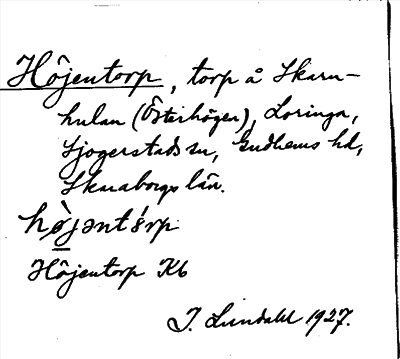 Höjentorp, torp å Skarn-
hulan (Österhögen), Loringa,
Sjogerstads sn, Gudhems hd,
Skaraborgs län.
hø̀jəntórp
Höjentorp Kb
I. Lundahl 1927.